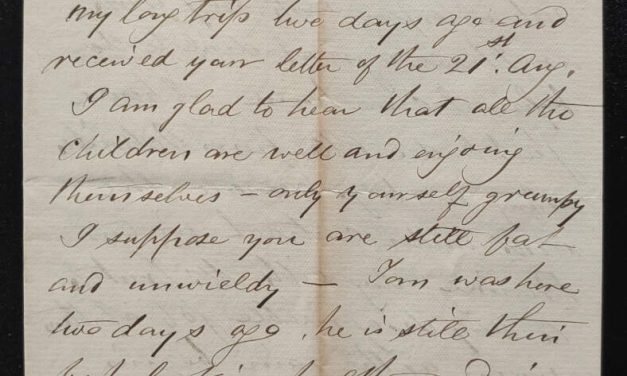 my long trip two days ago and
received your letter of the 21st. Aug.
I am glad to hear that all the
children are well and enjoing
themselves – only yourself grumpy
I suppose you are still fat
and unwieldy – Tom was here
two days ago. he is still thin
but looking better